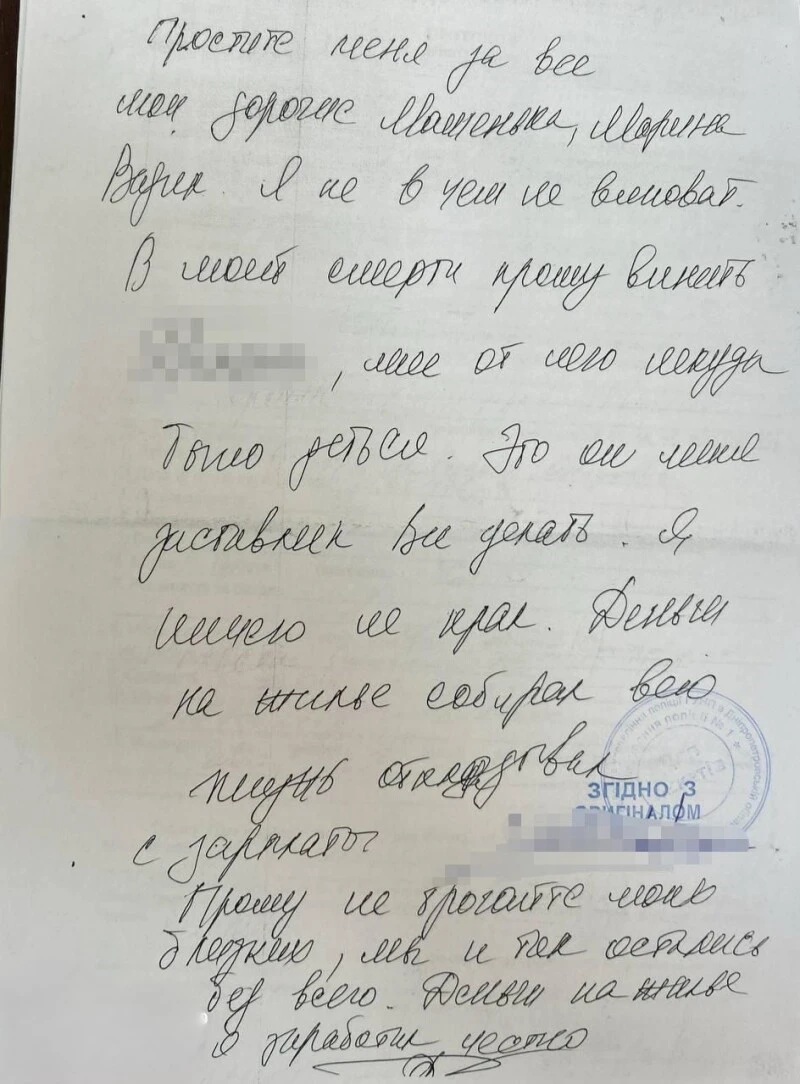 Простите меня за все
мои дорогие Машенька, Марина
Вадик. Я не в чем не виноват.
В моей смерти прошу винить
, мне от него некуда
было деться. Это он меня
заставлял все делать. Я
ничего не крал. Деньги
на жилье собирал всю
жизнь откладывал
ЗГІДНО З
ОРИГІНАЛОМ
с зарплаты
Прошу не трогайте моих
близких, мы и так остались
без всего. Деньги на жилье
я заработал честно